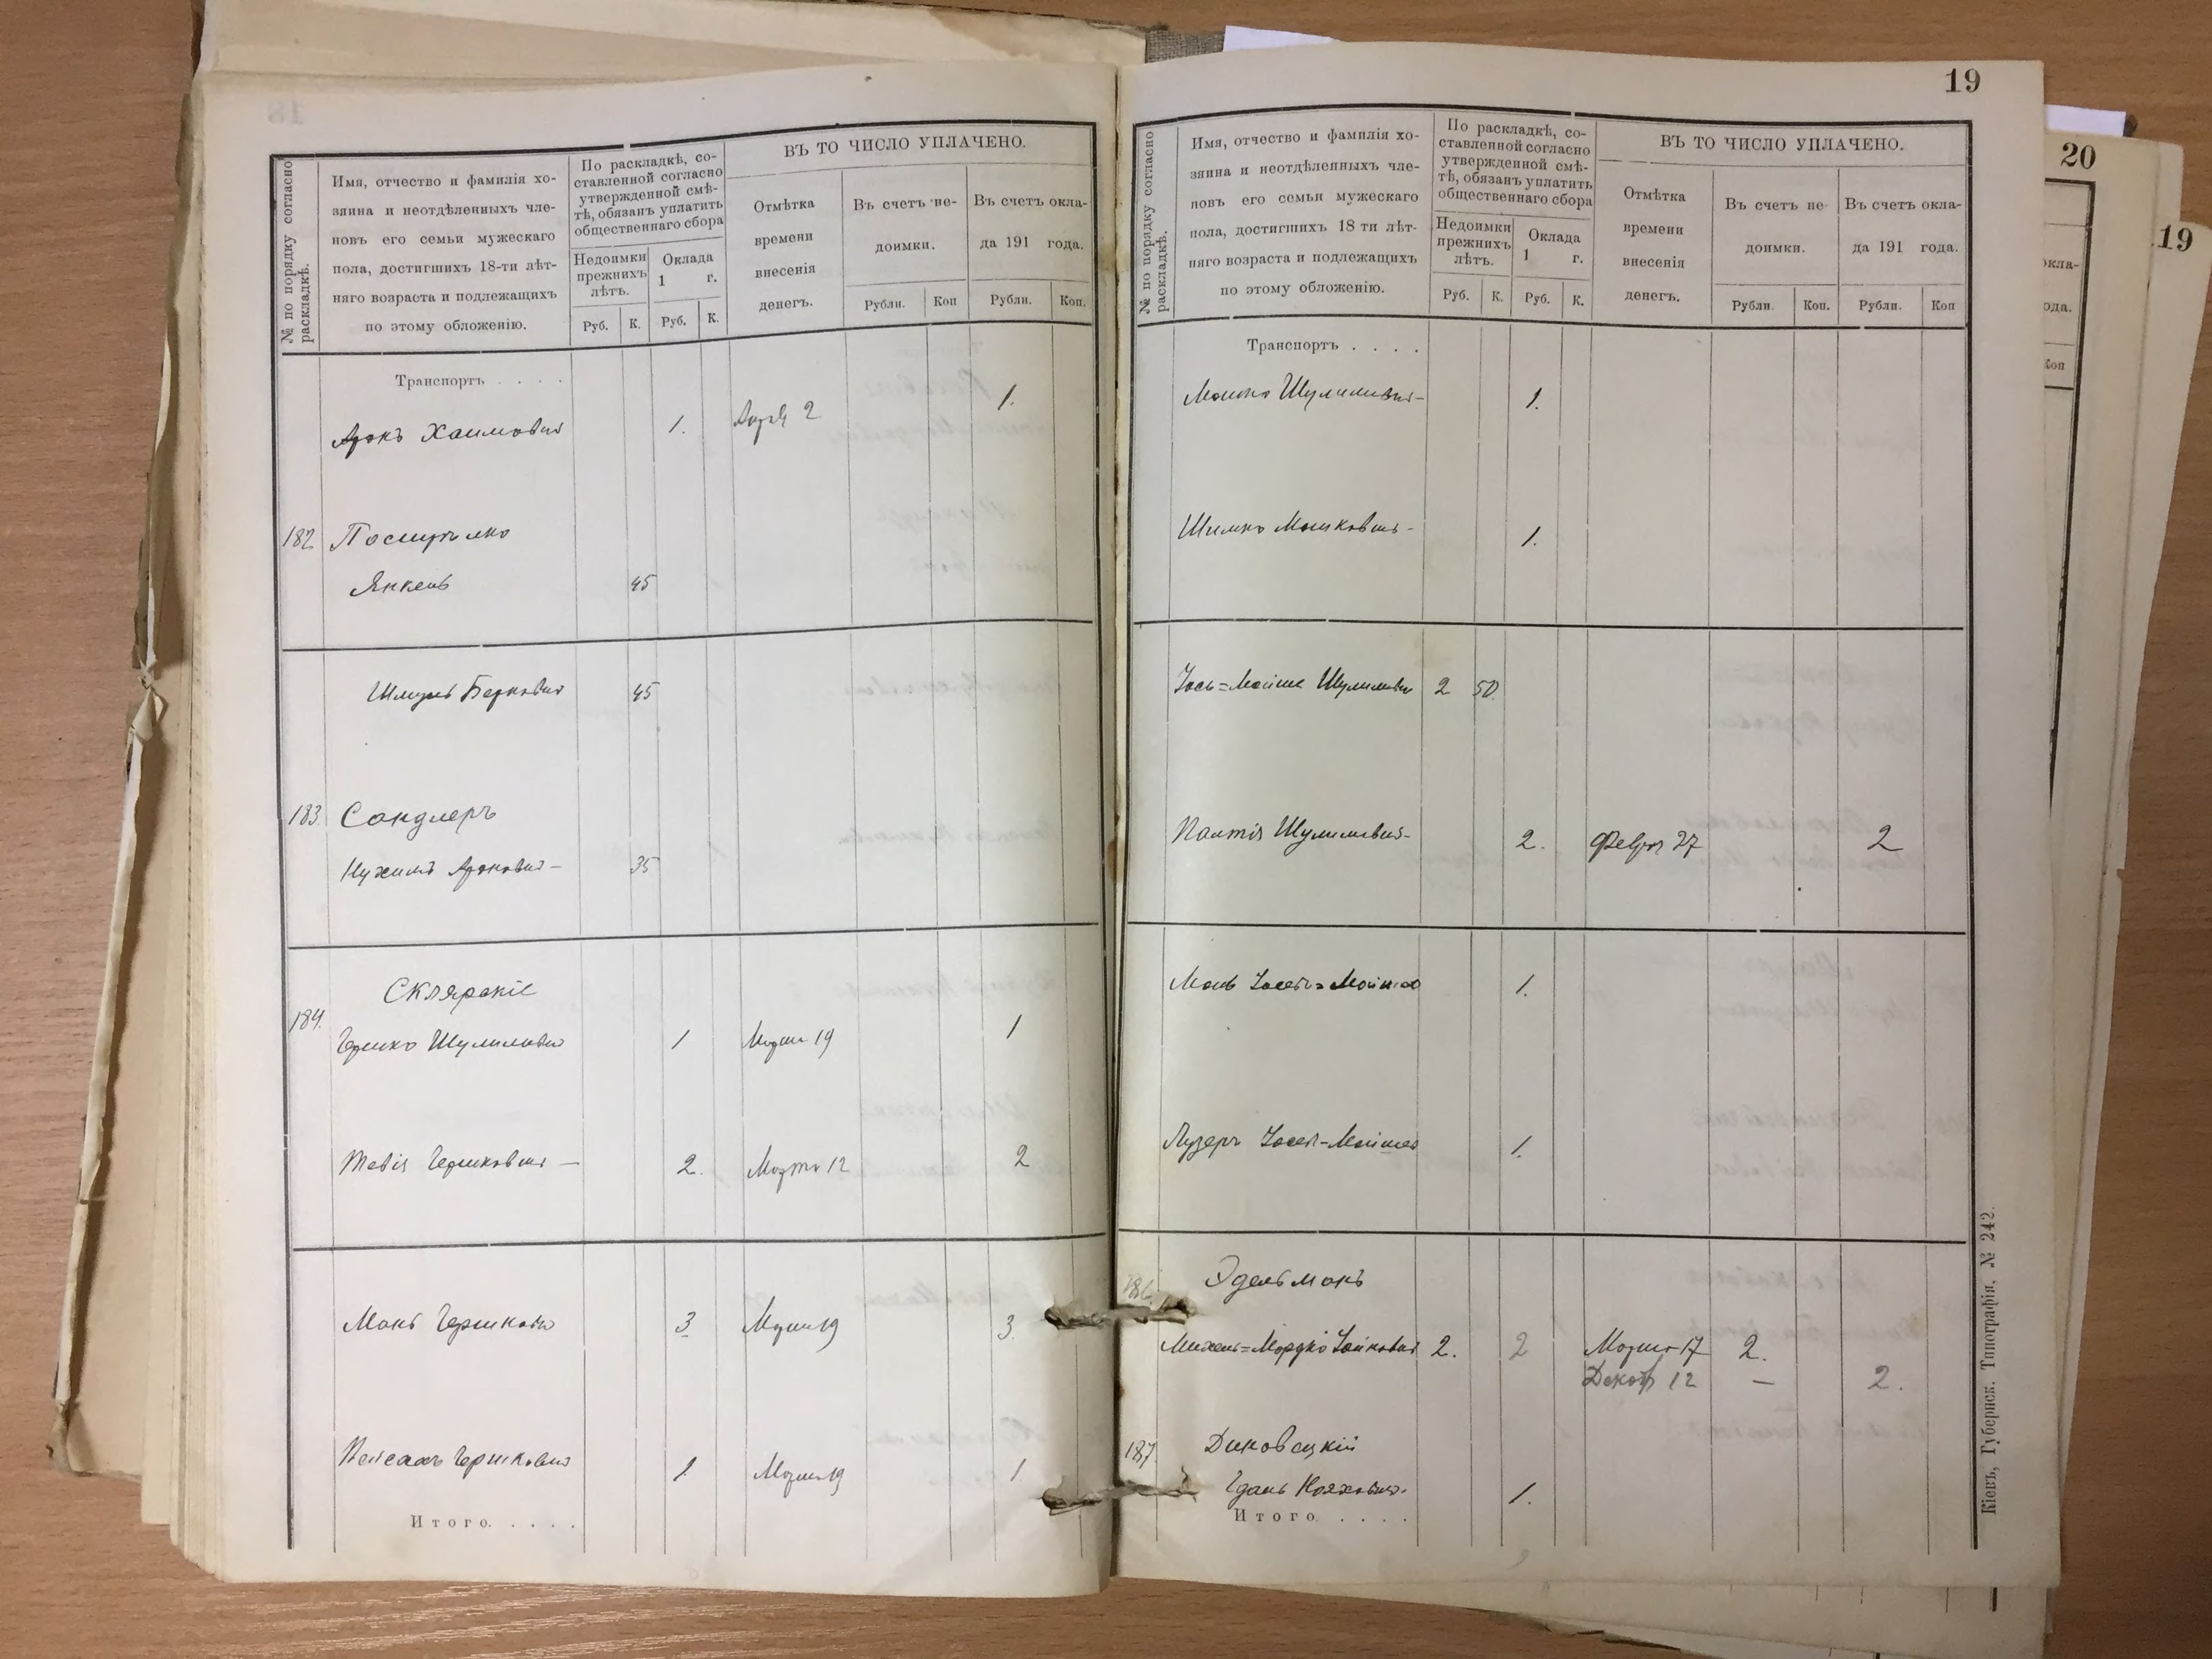 № по порядку согласно
раскладкѣ.
Имя, отчество и фамилія хо-
зяина и неотдѣленныхъ чле-
новъ его семьи мужескаго
пола, достигшихъ 18-ти лѣт-
няго возраста и подлежащихъ
по этому обложенію.
По раскладкѣ, со-
ставленной согласно
утвержденной смѣ-
тѣ, обязанъ уплатить
общественнаго сбора
Недоимки
прежнихъ
лѣтъ.
Оклада
1 г.
Руб. К. Руб. К.
ВЪ ТО ЧИСЛО УПЛАЧЕНО.
Отмѣтка
времени
внесенія
денегъ.
Въ счетъ не-
доимки.
Въ счетъ окла-
да 191 года.
Рубли. Коп Рубли. Коп.
Транспортъ . . . .
Аронъ Хаимовичъ 1. 2 1.
182
Янкель 45
Шмуль Берковичъ 45
183. Сандлеръ
Нухимъ Ароновичъ 35
Склярскіе
184. Гершко Шулимовичъ 1 Марта 19 1
Тевія Гершковичъ — 2. Марта 12 2
Гершковичъ 3 Марта 19 3.
Пейсахъ Гершковичъ 1. Марта 19 1.
Итого. . . . .
19
№ по порядку согласно
раскладкѣ.
Имя, отчество и фамилія хо-
зяина и неотдѣленныхъ чле-
новъ его семьи мужескаго
пола, достигшихъ 18 ти лѣт-
няго возраста и подлежащихъ
по этому обложенію.
По раскладкѣ, со-
ставленной согласно
утвержденной смѣ-
тѣ, обязанъ уплатить
общественнаго сбора
Недоимки
прежнихъ
лѣтъ.
Оклада
1 г.
Руб. К. Руб. К.
ВЪ ТО ЧИСЛО УПЛАЧЕНО.
Отмѣтка
времени
внесенія
денегъ.
Въ счетъ не-
доимки.
Въ счетъ окла-
да 191 года.
Рубли. Коп. Рубли. Коп
Транспортъ . . . .
Мошко Шулимовичъ 1.
Шимко Мошковичъ 1.
Іось=Мойше Шулимовичъ 2 50
Шулимовичъ 2. Февр 27 2
Іосей=Мойше 1.
Лузеръ Іосей-Мойше 1.
186. Эдельманъ
Михель=Мордко 2. 2 Марта 17 2.
Декаб 12 — 2.
187.
1.
Итого. . . . .
Кіевъ, Губернск. Типографія, № 242.
20
окла-
ода.
Коп
19